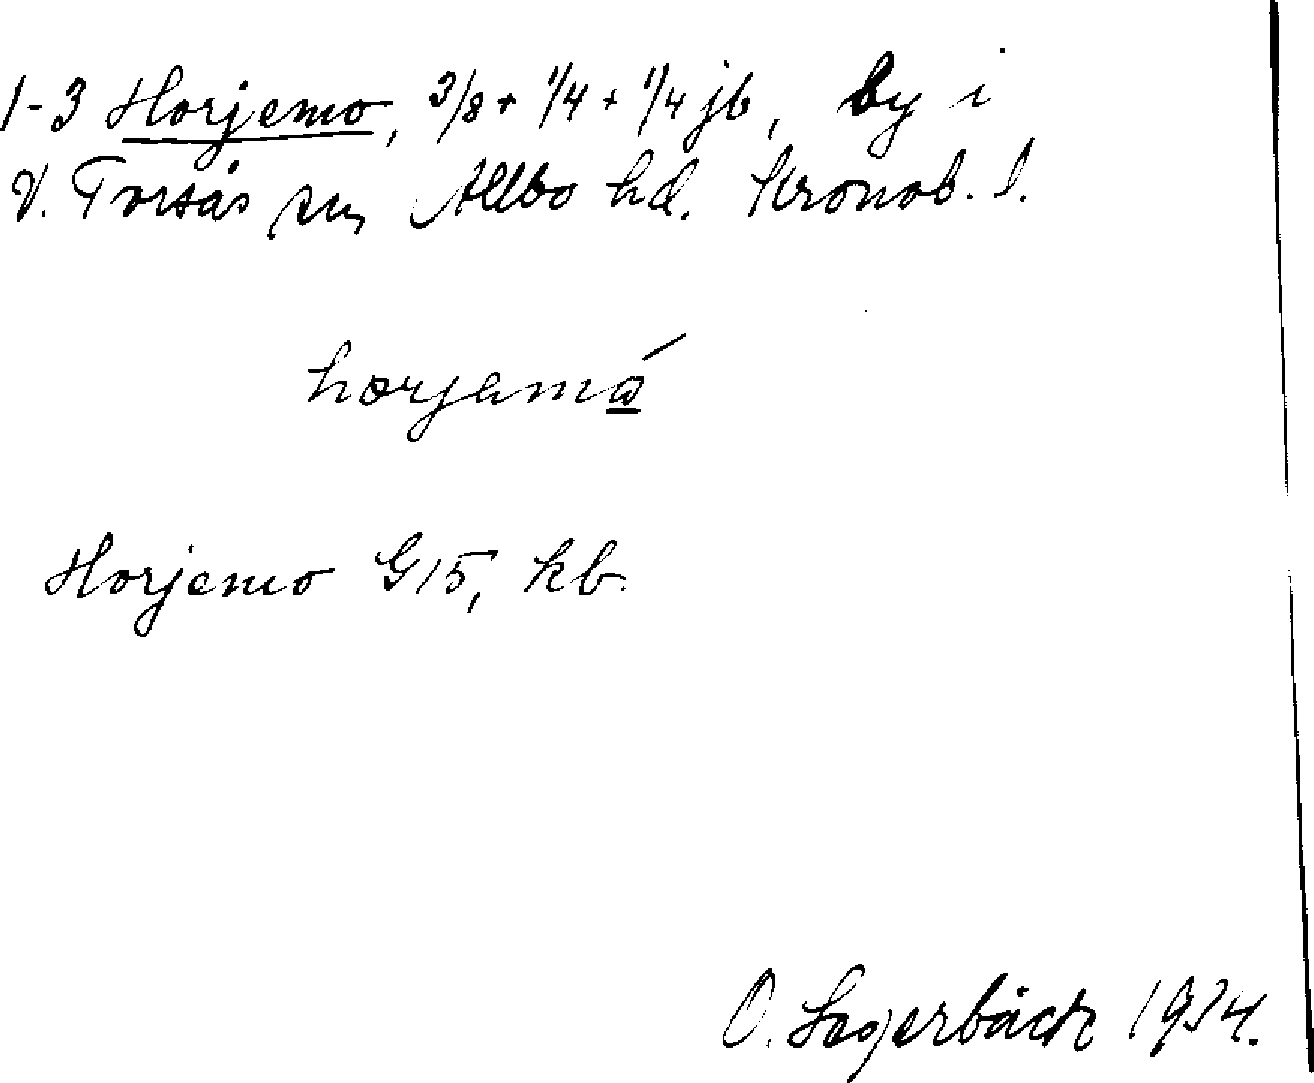 1-3 Horjemo, 3/8 + 1/4 + 1/4 jb, by i
V. Torsås sn, Allbo hd. Kronob. l.
horjamó
Horjemo G15, kb.
O. Lagerbäck 1934.